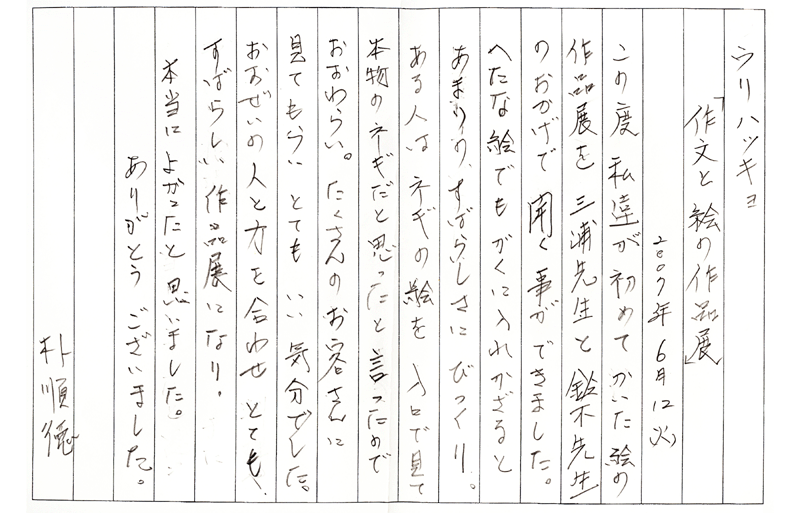 ウリハッキョ
「作文と絵の作品展」
2007年6月12(火)
この度 私達が初めてかいた絵の
作品展を 三浦先生と鈴木先生
のおかげで 開く事ができました。
へたな絵でも がくに入れかざると
あまりの、すばらしさに びっくり。
ある人は ネギの絵を 入口で見て
本物のネギだと思ったと 言ったので
おおわらい。たくさんの お客さんに
見てもらい とても いい 気分でした。
おおぜいの 人と 力を 合わせ とても、
すばらしい 作品展になり、
本当に よかったと 思いました。
ありがとう ございました。
朴順徳